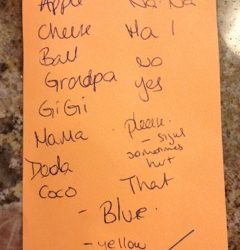 Apple Na-Na
Cheese Ha!
Ball no
Grandpa yes
GiGi
Mama Please.
- sign
sometimes
hurt
Dada
Coco That
- Blue.
- yellow